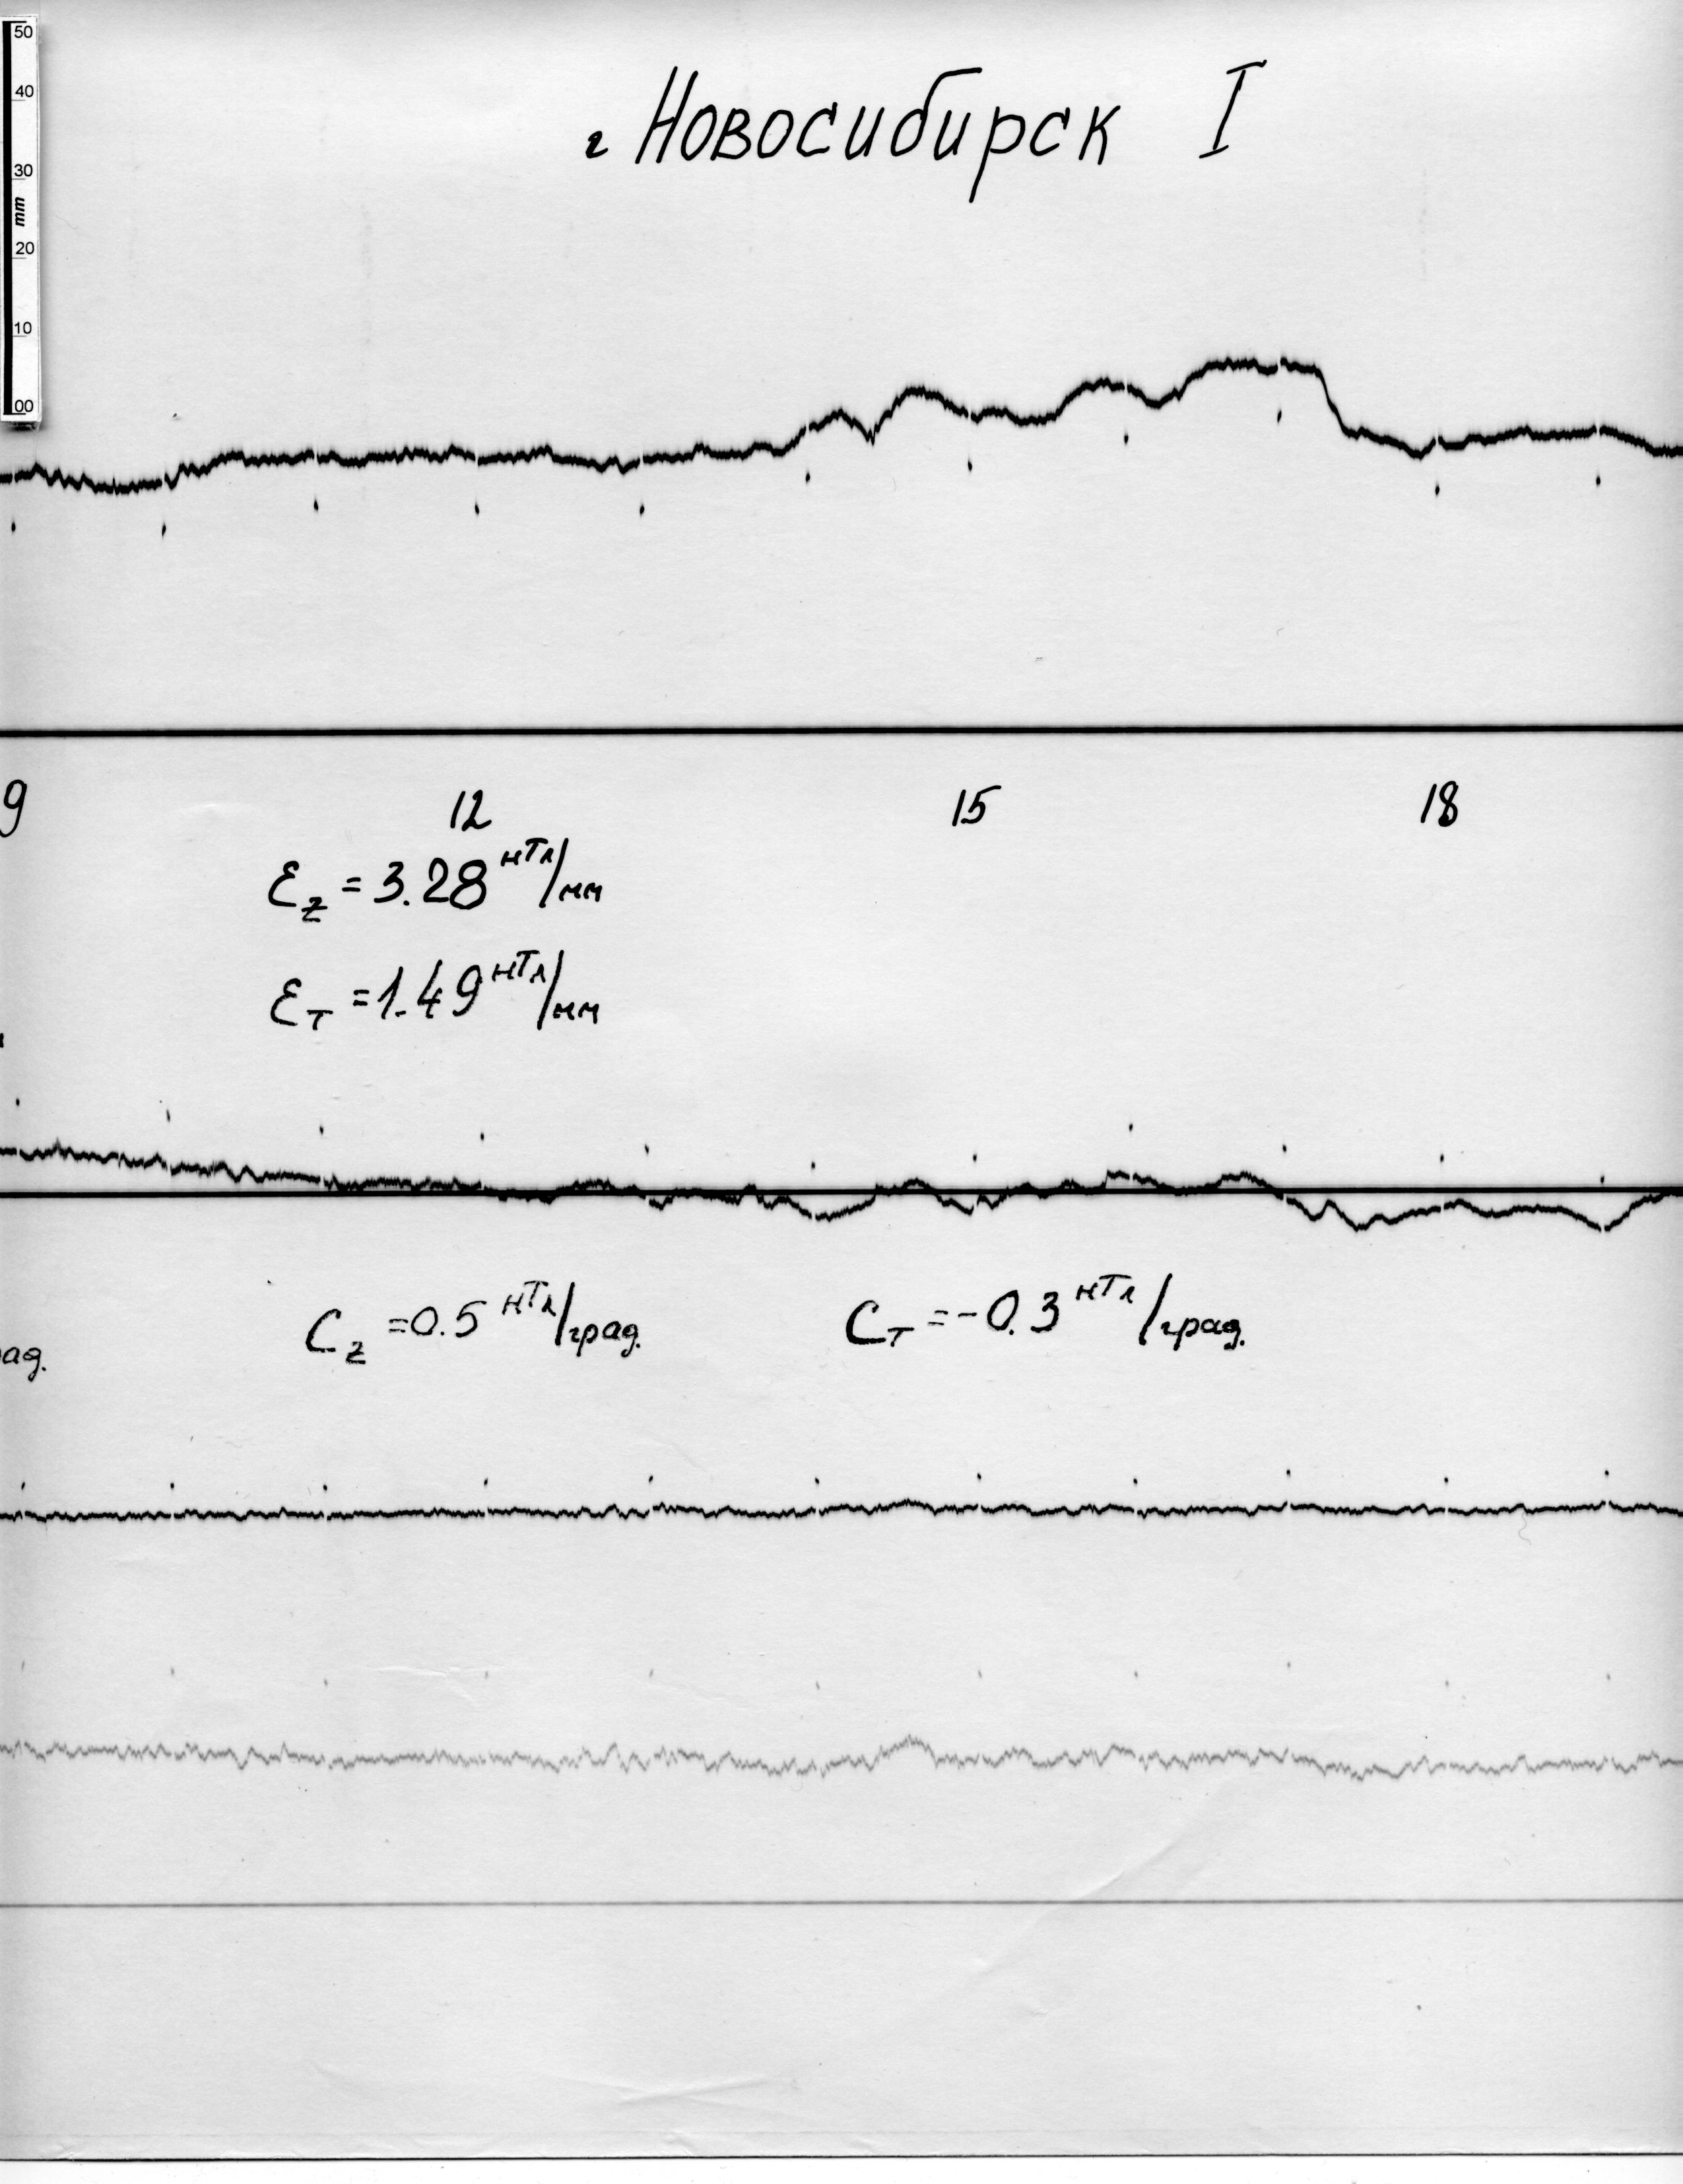 50
40
30
mm
20
10
00
г Новосибирск I
9 12 15 18
Ɛz = 3.28 нТл/мм
Ɛт = 1.49 нТл/мм
ад.
Cz = 0.5 нТл/град.
Cт = -0.3 нТл/град.